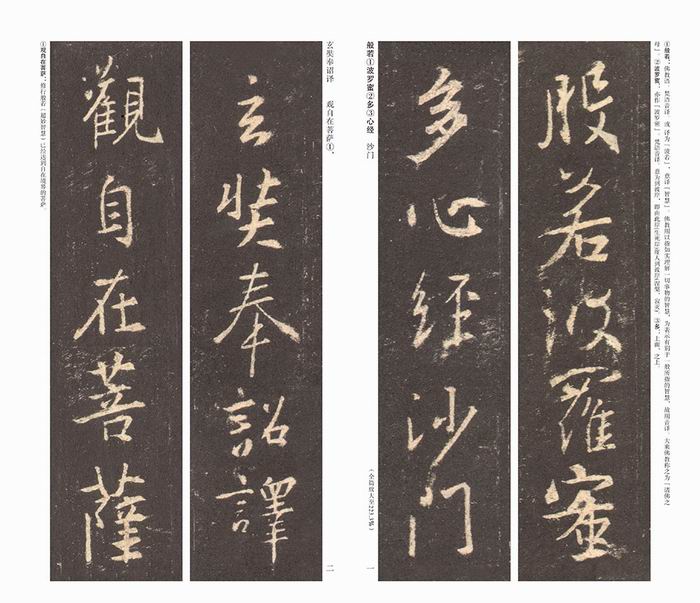 ①般若：佛教语，梵语音译，或译为「波若」，意译「智慧」。佛教用以指如实理解一切事物的智慧，为表示有别于一般所指的智慧，故用音译。大乘佛教称之为「诸佛之
母」。②波罗蜜：亦作「波罗蜜」，梵语音译，意为到彼岸，即由此岸（生死岸）度人到彼岸（涅槃、寂灭）。③多：上面，之上。
般若波羅蜜
多心經沙门
般若①波罗蜜②多③心经　沙门
一
玄奘奉诏译　观自在菩萨①，
二
玄奘奉詔譯
觀自在菩薩
①观自在菩萨：修行般若（超妙智慧）已经达到自在境界的菩萨。